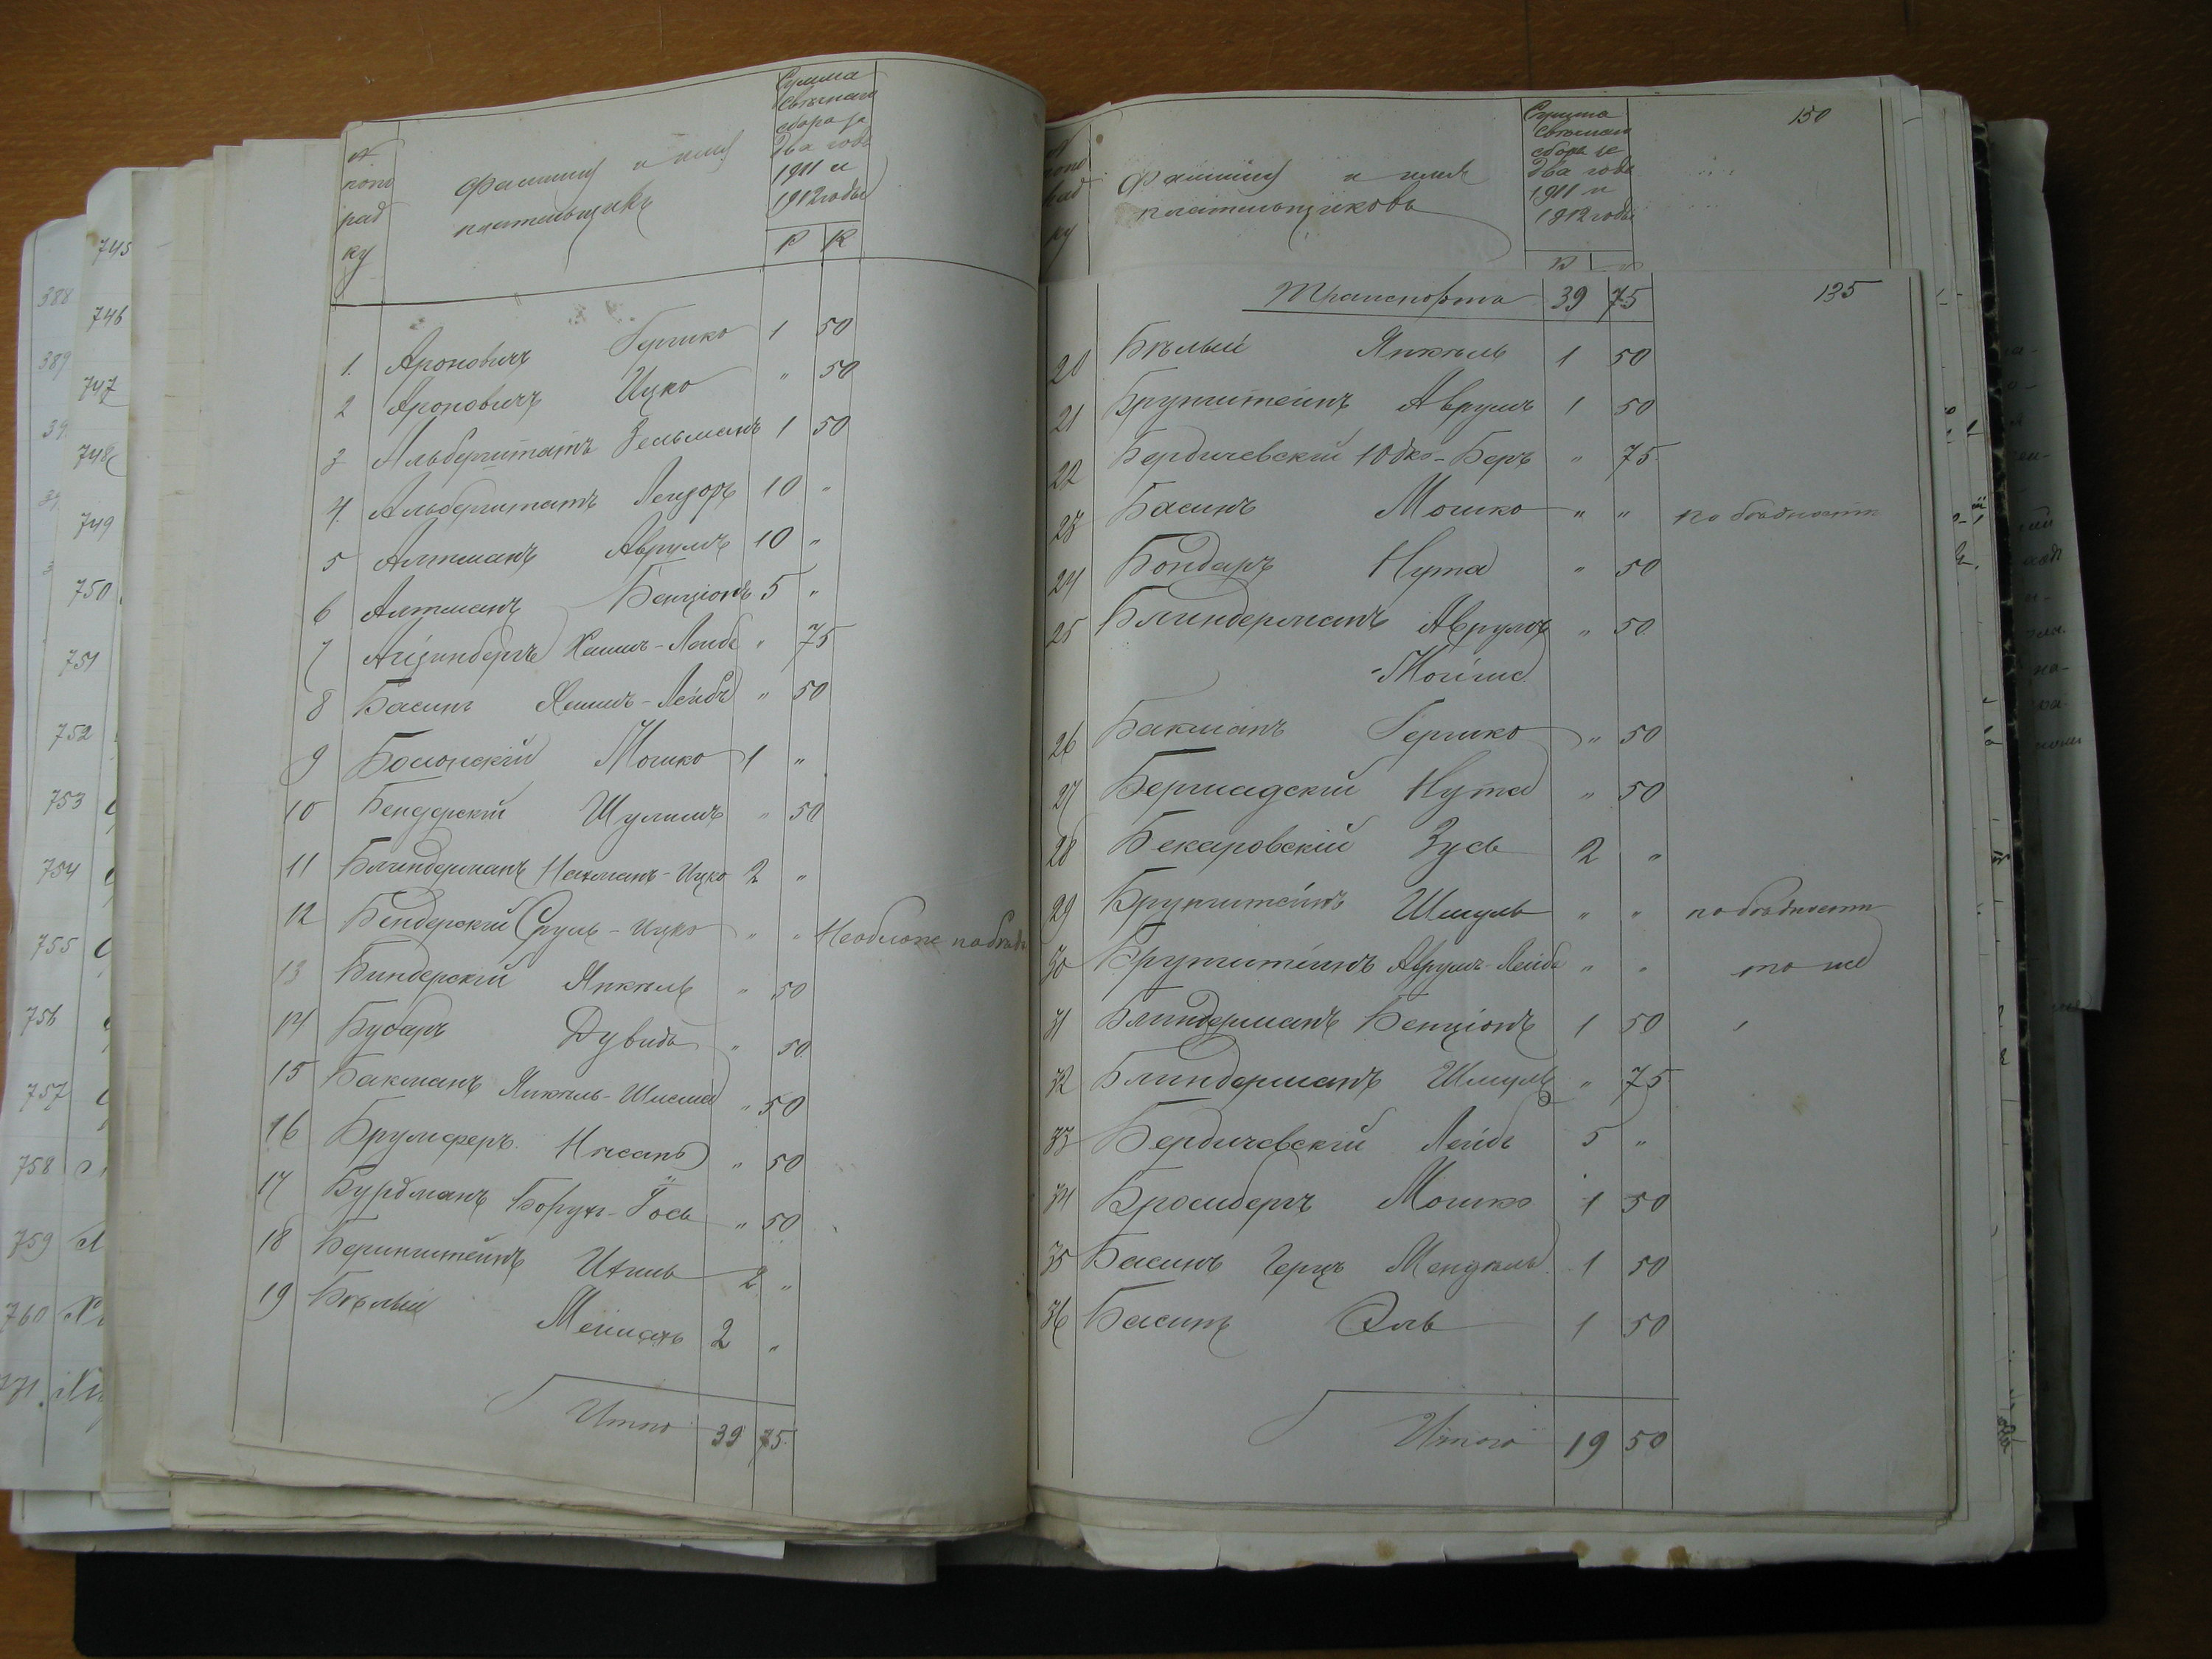 745
746
747
748
749
750
751
752
753
754
755
756
757
758
759
760
388
389
№ поря ряд ку
Фамилия и имя
плательщикъ
Сумма
свечнаго
сбора за
два года
1911 и
1912 годы
Р К
1. Ароновичъ Гершко 1 50
2 Ароновичъ Ицко " 50
3 Альберштатъ Зельманъ 1 50
4. Альберштатъ Лейзоръ 10 "
5 Алтманъ Аврумъ 10 "
6 Алтманъ Бенціонъ 5 "
7 Айзинбергъ Хаимъ-Лейбъ " 75
8 Басинъ Хаимъ-Лейбъ " 50
9 Мошко 1 "
10 Бендерскій Шулимъ " 50
11 Блиндерманъ Нахманъ-Ицко 2 "
12 Бендерскій Сруль-Ицко " "
13 Биндерскій Янкель " 50
14 Дувидъ " 50
15 Бакманъ Янкель-Шлема " 50
16 Нисанъ " 50
17 Бурдманъ Борухъ-Іось " 50
18 Беринштейнъ Ихиль 2 "
19 Бѣлый 2 "
Итого 39 75
150
Фамилия и имя
плательщиковъ
Сумма
свечнаго
сбора за
два года
1911 и
1912 годы
Транспортъ 39 75 135
20 Бѣлый Янкель 1 50
21 Брунштейнъ Аврумъ 1 50
22 Бердичевскій Юдко-Беръ " 75
23 Басинъ Мошко " " по бѣдности
24 Бондарь Нута " 50
25 Блиндерманъ Аврумъ " 50
-Мойше
26 Бакманъ Гершко " 50
27 Бершадскій Нута " 50
28 Бекеровскій Зусь 2 "
29 Брунштейнъ Шмуль " " по бѣдности
30 Брунштейнъ Аврумъ-Лейбъ " " то же
31 Блиндерманъ Бенціонъ 1 50
32 Блиндерманъ Шмуль " 75
33 Бердичевскій Лейбъ 5 "
34 Бромбергъ Мошко 1 50
35 Басинъ Герцъ Мендель 1 50
36 Басинъ Эль 1 50
Итого 19 50